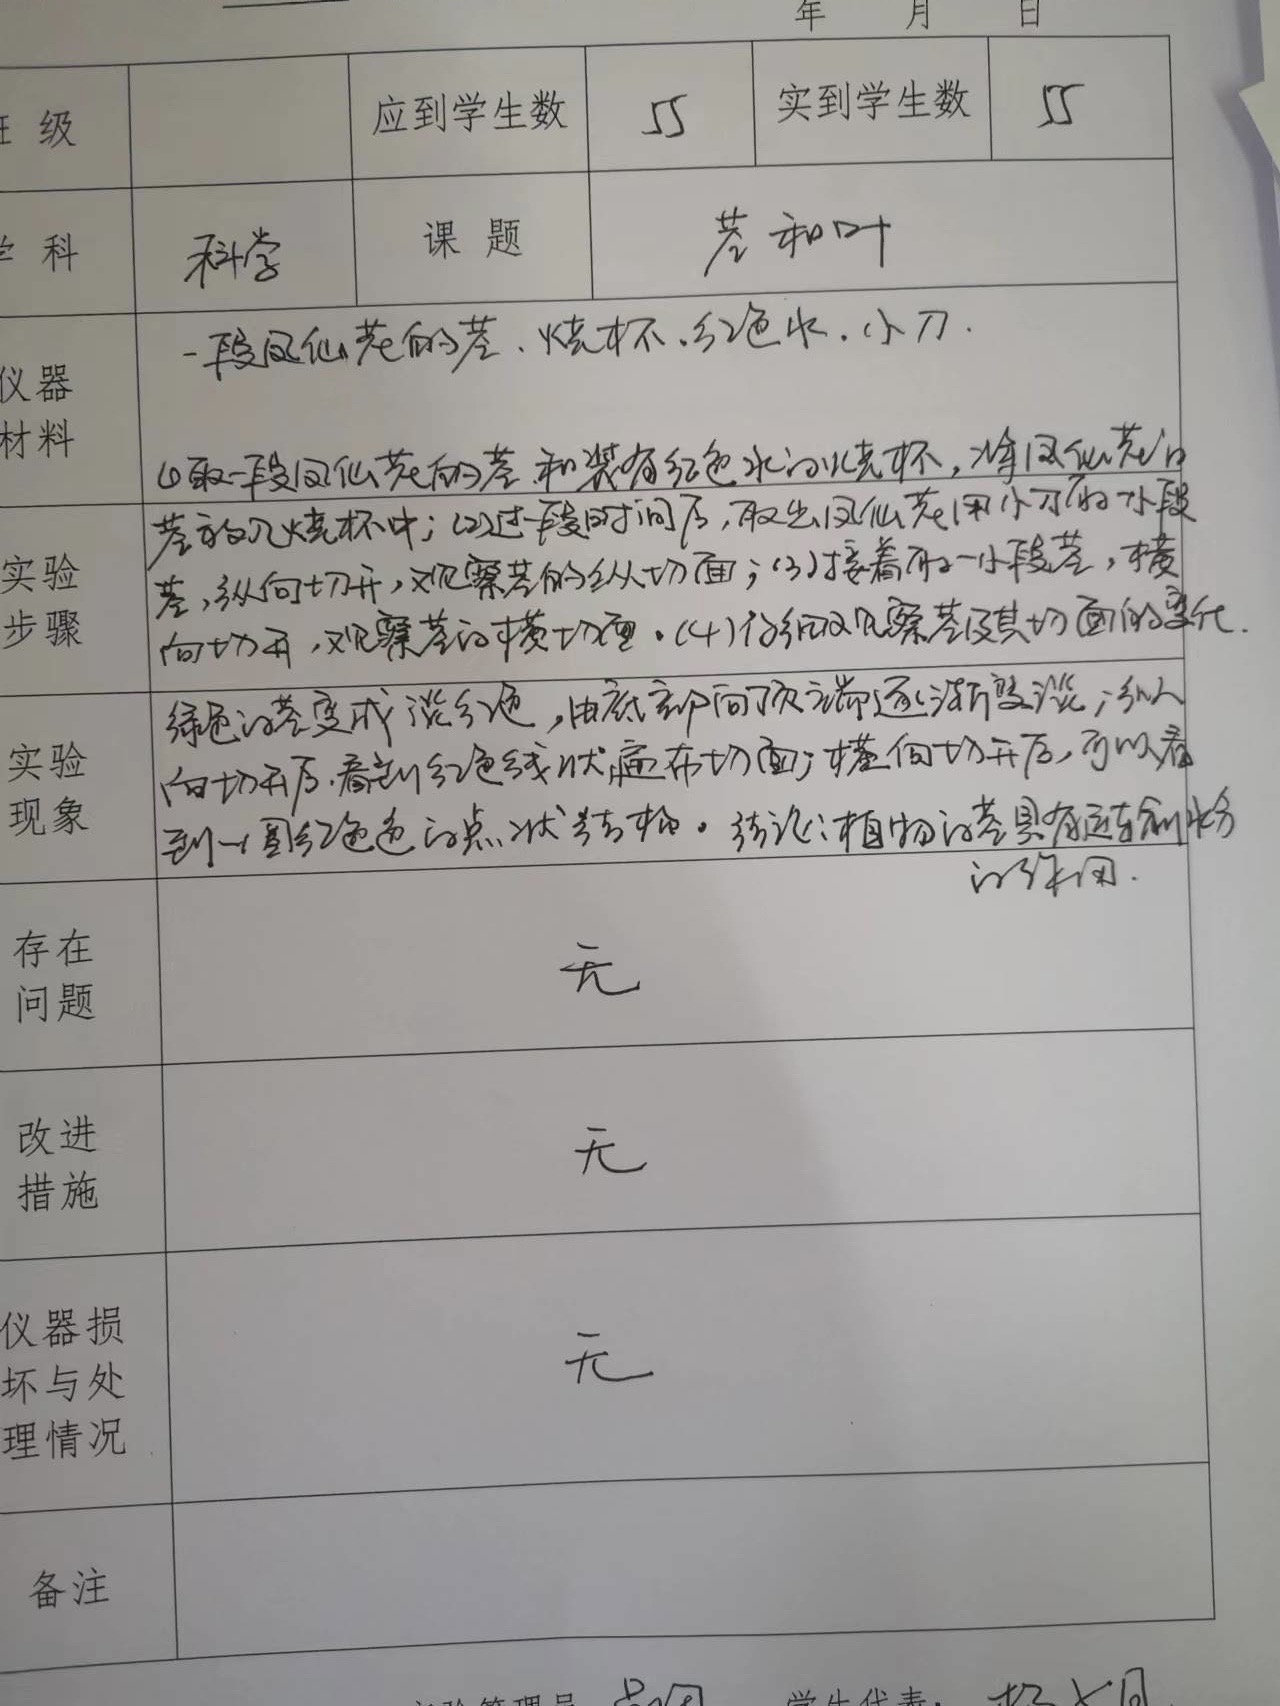 年 月 日
班 级 应到学生数 55 实到学生数 55
学 科 科学 课 题 茎和叶
仪器
材料
一段凤仙花的茎、烧杯、红色水、小刀.
实验
步骤
(1)取一段凤仙花的茎和装有红色水的烧杯,将凤仙花的
茎放入烧杯中;(2)过一段时间后,取出凤仙花用小刀取一小段
茎,纵向切开,观察茎的纵切面;(3)接着取一小段茎,横
向切开,观察茎的横切面。(4)仔细观察茎及其切面的变化.
实验
现象
绿色的茎变成淡红色,由底部向顶端逐渐变淡;纵
向切开后,看到红色线状遍布切面;横向切开后,可以看
到一圈红色色的点状结构。结论:植物的茎具有运输水分
的作用.
存在
问题
无
改进
措施
无
仪器损
坏与处
理情况
无
备注
实验管理员 学生代表: